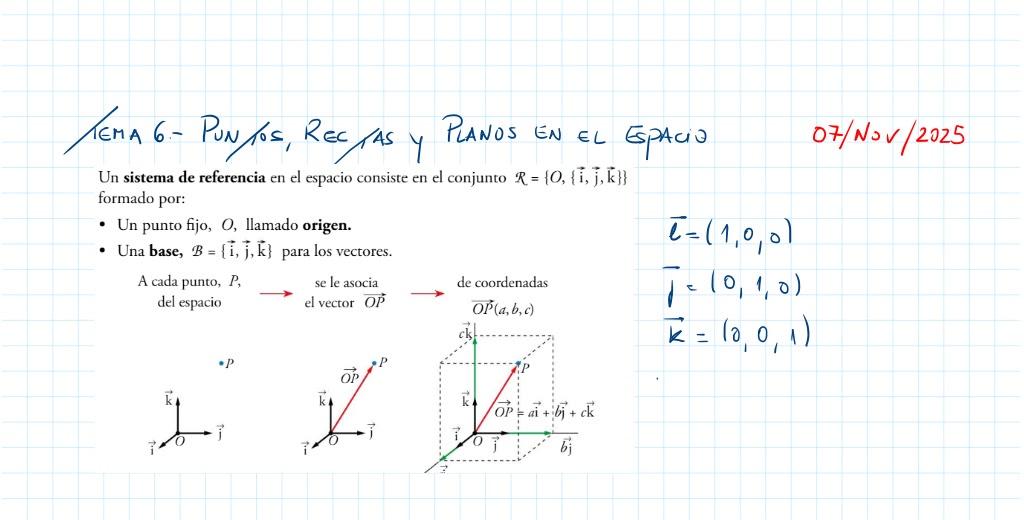 TEMA 6.- PUNTOS, RECTAS Y PLANOS EN EL ESPACIO
07/Nov/2025
Un sistema de referencia en el espacio consiste en el conjunto ℛ = {O, {i⃗, j⃗, k⃗}}
formado por:
• Un punto fijo, O, llamado origen.
• Una base, ℬ = {i⃗, j⃗, k⃗} para los vectores.
i⃗ = (1,0,0)
j⃗ = (0,1,0)
k⃗ = (0,0,1)
A cada punto, P,
del espacio
se le asocia
el vector OP⃗
de coordenadas
OP⃗(a, b, c)
P
k⃗
j⃗
i⃗
O
P
OP⃗
k⃗
j⃗
i⃗
O
ck⃗
P
k⃗
OP⃗ = ai⃗ + bj⃗ + ck⃗
i⃗
O
j⃗
bj⃗